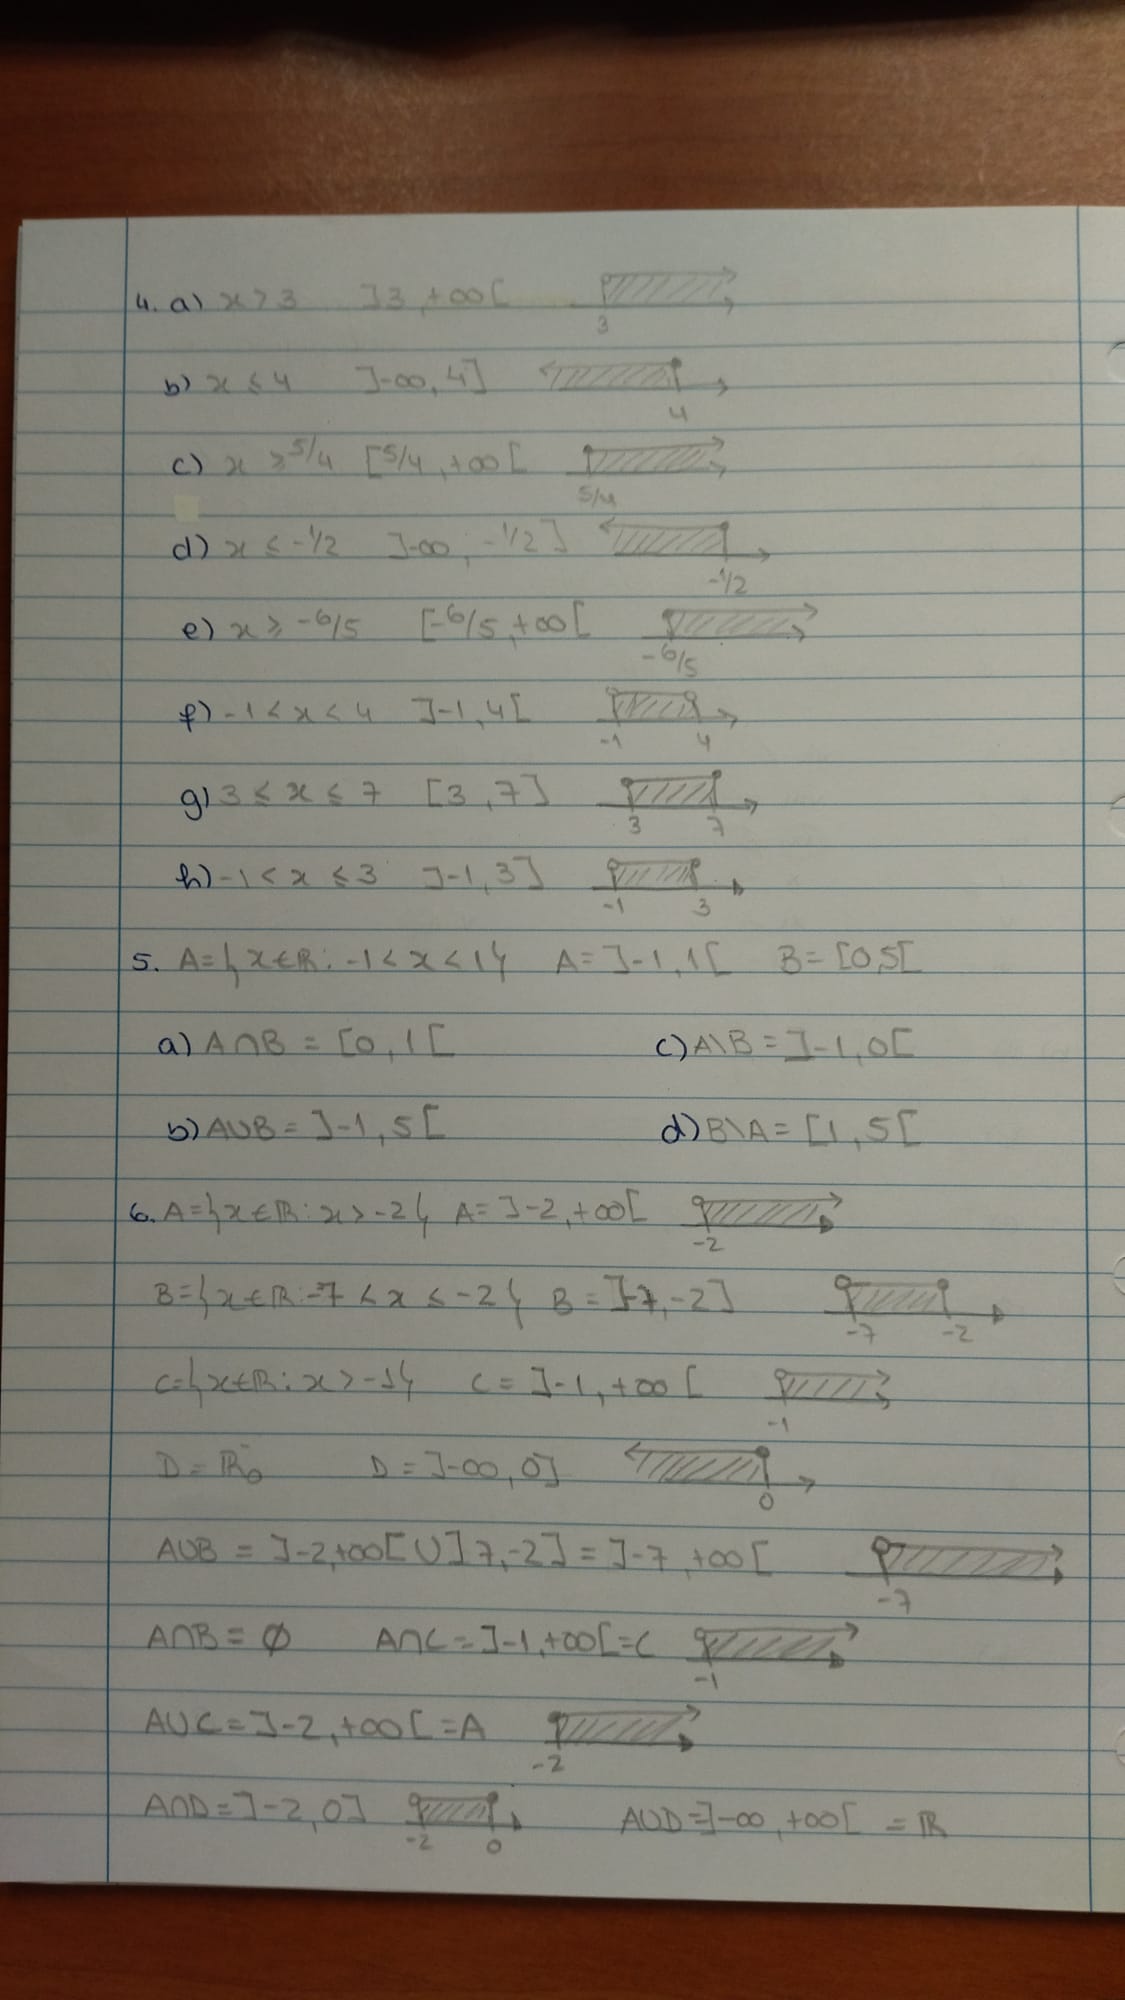 4. a) x > 3 ]3, +∞[
3
b) x ≤ 4 ]-∞, 4]
4
c) x ≥ 5/4 [5/4, +∞[
5/4
d) x ≤ -1/2 ]-∞, -1/2]
-1/2
e) x ≥ -6/5 [-6/5, +∞[
-6/5
f) -1 < x < 4 ]-1, 4[
-1 4
g) 3 ≤ x ≤ 7 [3, 7]
3 7
h) -1 < x ≤ 3 ]-1, 3]
-1 3
5. A={x∈ℝ: -1 < x < 1} A= ]-1, 1[ B= [0,5[
a) A∩B = [0, 1[ c) A\B = ]-1, 0[
b) A∪B = ]-1, 5[ d) B\A = [1, 5[
6. A={x∈ℝ: x > -2} A= ]-2, +∞[
-2
B={x∈ℝ: -7 < x ≤ -2} B = ]-7, -2]
-7 -2
C={x∈ℝ: x > -1} C = ]-1, +∞[
-1
D = ℝ₀⁻ D = ]-∞, 0]
0
A∪B = ]-2, +∞[ ∪ ]7, -2] = ]-7, +∞[
-7
A∩B = ∅ A∩C = ]-1, +∞[ = C
-1
A∪C = ]-2, +∞[ = A
-2
A∩D = ]-2, 0] A∪D = ]-∞, +∞[ = ℝ
-2 0